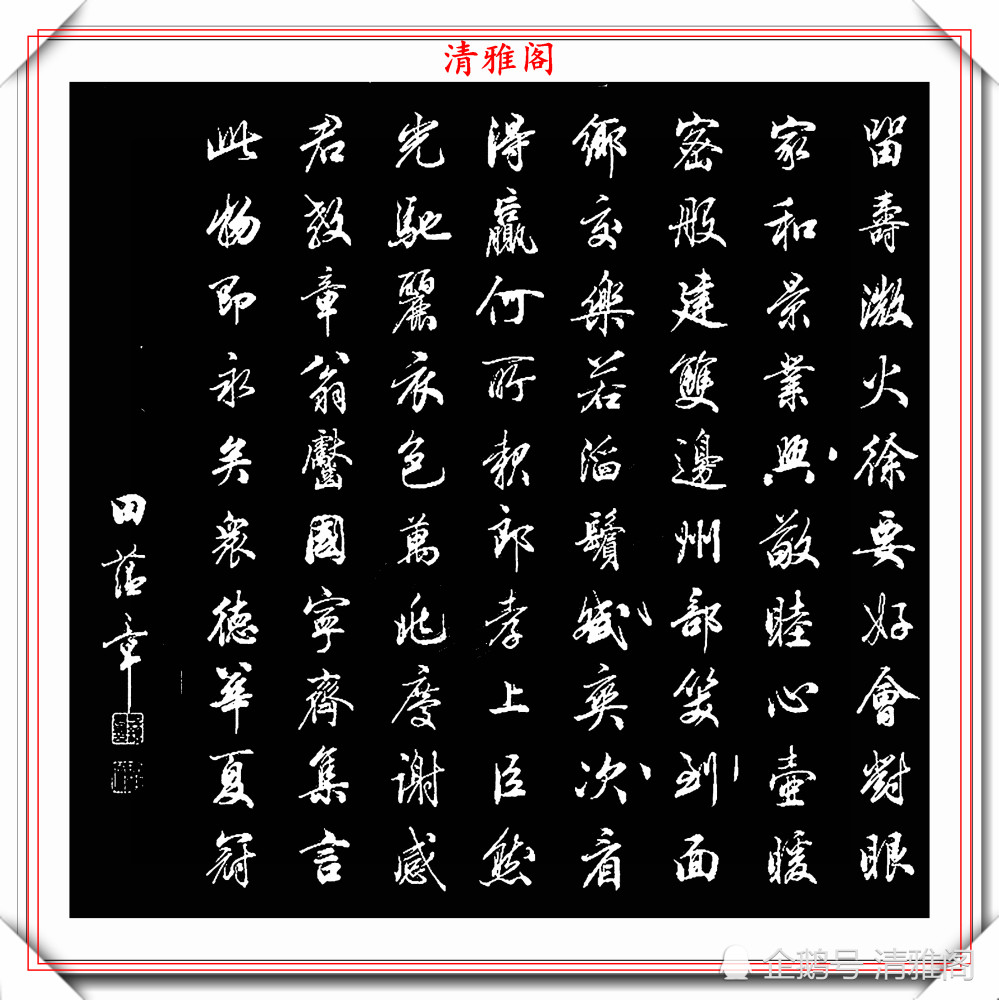 清雅阁
留壽激火徐要好會對眼
家和景業興敬睦心壷暖
密般建雙邊州部笑到面
鄉交樂若滔鬢感奕次看
得贏何所親郎孝上臣然
光馳麗衣色萬兆慶谢感
君教章翁國寧齊集言
此物即永矣衆德華夏冠
田蕴章
企鹅号 清雅阁